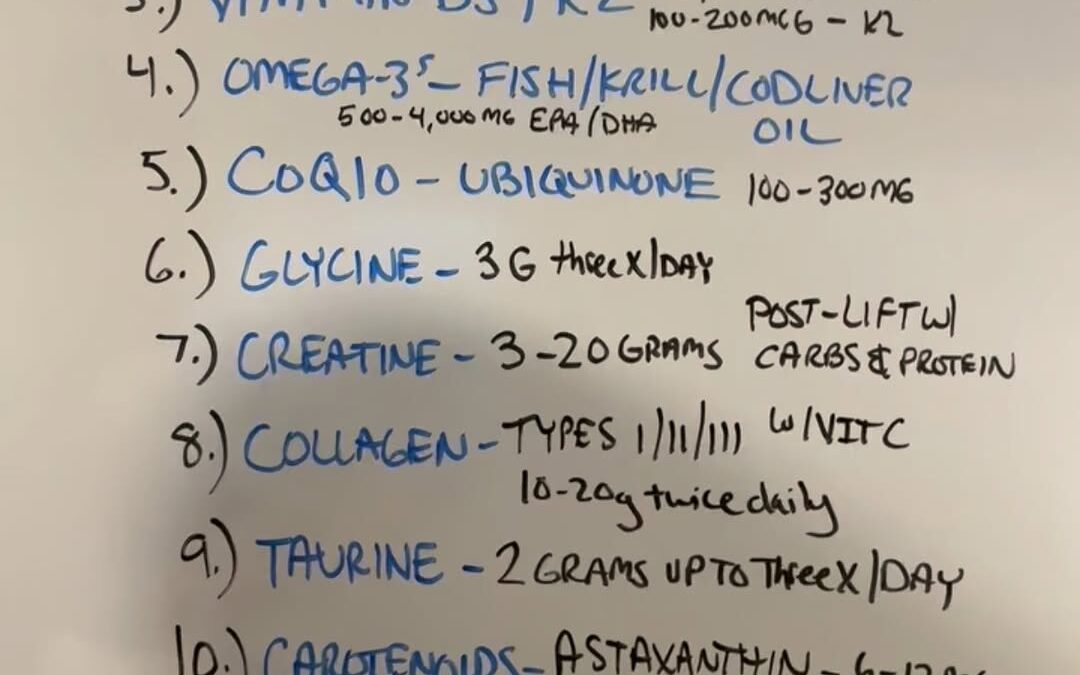 3.) VITAMIN D3 / K2 100-200MCG - K2
4.) OMEGA-3s - FISH/KRILL/CODLIVER OIL
500-4,000MG EPA/DHA
5.) COQ10 - UBIQUINONE 100-300MG
6.) GLYCINE - 3G three X/DAY
7.) CREATINE - 3-20 GRAMS POST-LIFT W/ CARBS & PROTEIN
8.) COLLAGEN - TYPES I/II/III W/VIT C
10-20g twice daily
9.) TAURINE - 2 GRAMS UP TO Three X/DAY
10.) CAROTENOIDS - ASTAXANTHIN -